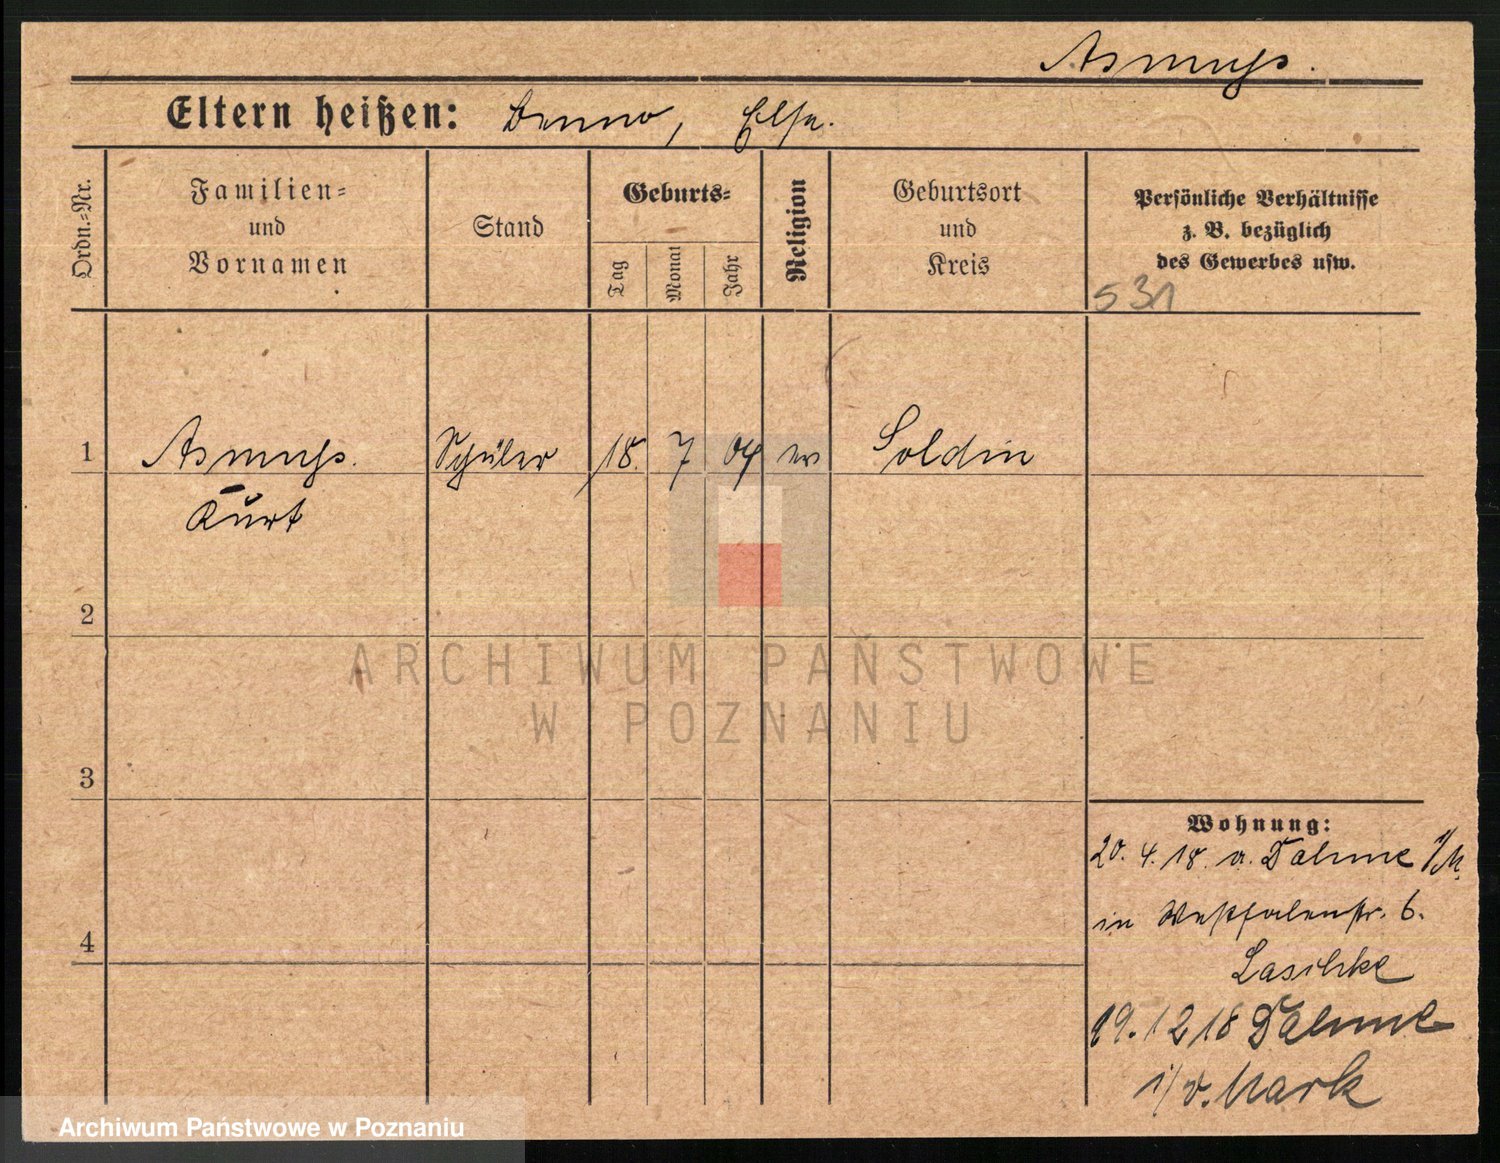 Asmuss.
Eltern heißen: Benno, Else.
Ordn.=Nr.
Familien=
und
Vornamen
Stand
Geburts=
Tag
Monat
Jahr
Religion
Geburtsort
und
Kreis
Persönliche Verhältnisse
z. B. bezüglich
des Gewerbes usw.
531
1 Asmuss. Schüler 18. 7 04 ev Soldin
Kurt
2
3
4
Wohnung:
20. 4. 18. v. Dahme i/M.
in Westfalenstr. 6.
Laschke
19. 12 18 Dahme
i/d. Mark
ARCHIWUM PAŃSTWOWE
W POZNANIU
Archiwum Państwowe w Poznaniu